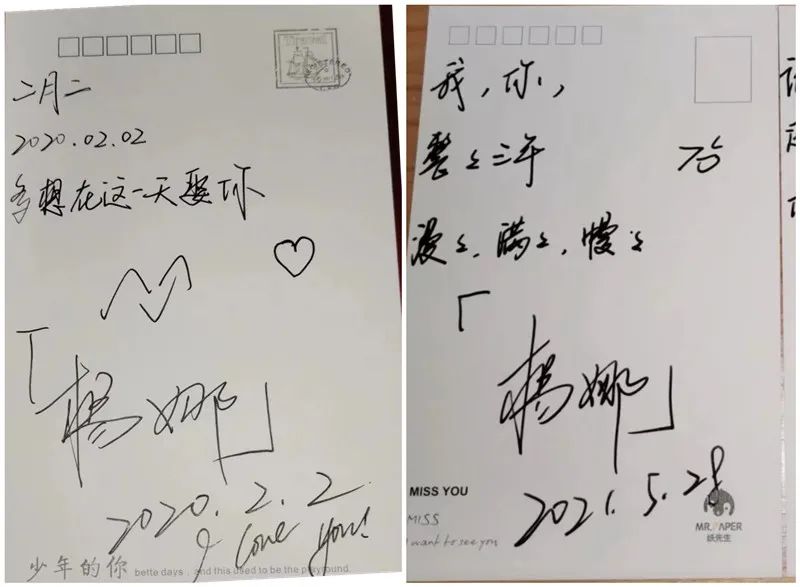 二月二
2020.02.02
多想在这一天娶你
「
楊娜」
2020.2.2
I Love You!
少年的你 bette days , and this used to be the playground.
我，你，
整整三年
漫々、满々、慢々
「
楊娜」
2021.5.28
MISS YOU
MISS
I want to see you
MR.PAPER
纸先生